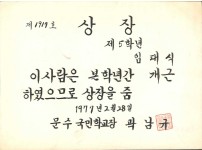 제1919호
상장
제5학년
임대식
이사람은 본학년간 개근
하였으므로 상장을 줌
1979년 2월 28일
문수 국민학교장 곽남규